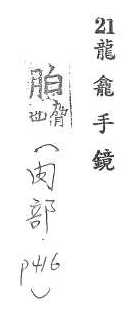 21龍龕手鏡
胉脅也(肉部.p416)